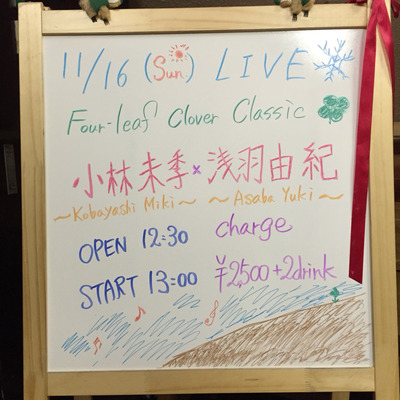 11/16 (Sun) LIVE
Four-leaf Clover Classic
小林未季×浅羽由紀
～Kobayashi Miki～ ～Asaba Yuki～
OPEN 12:30 charge
START 13:00 ¥2,500+2drink